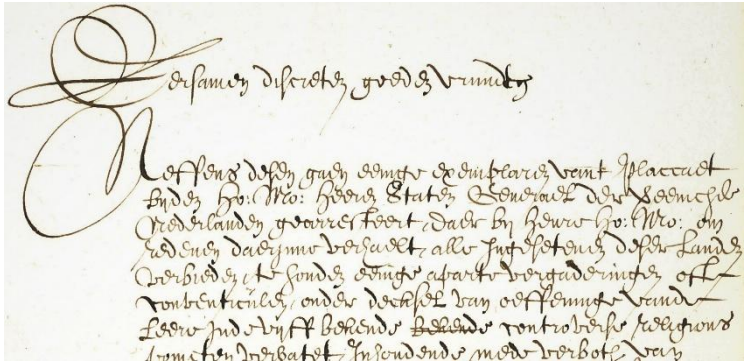 Eersamen discreten goeden vrunden
Neffens desen gaen eenige exemplaren vant Placcaet
byden Ho: Mo: heeren Staten Generael der Vereenichde
Nederlanden gearresteert, daer by heure Ho: Mo: om
redenen daerinne verhaelt, alle Ingesetenen deser Landen
verbieden, te houden eenige aparte vergaderingen ofte
conventiculen, onder decksel van oeffeninge vande
Leere inde vyff bekende bekende controverse religions
poincten vervatet, Inhoudende mede verboth van